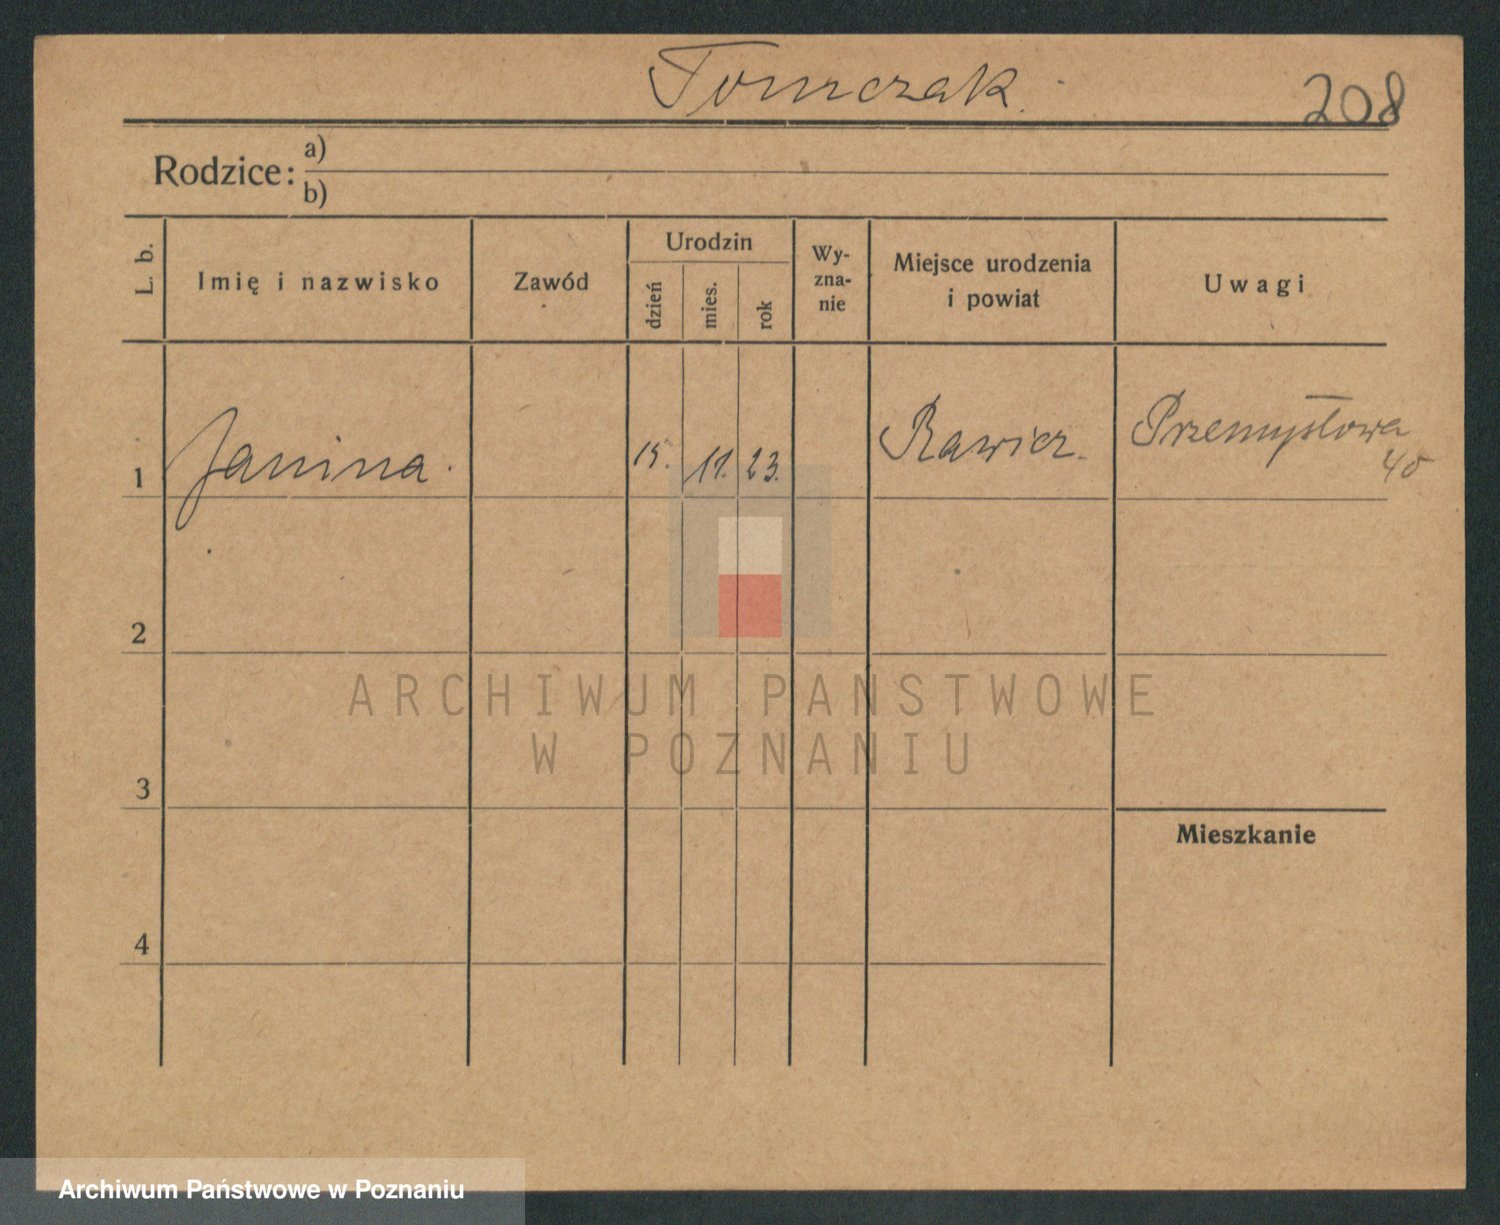 Tomczak.
208
Rodzice: a)
b)
L. b.
Imię i nazwisko
Zawód
Urodzin
dzień
mies.
rok
Wy-
zna-
nie
Miejsce urodzenia
i powiat
Uwagi
1
Janina.
15. 11. 23.
Rawicz.
Przemysłowa
45
2
3
4
Mieszkanie
ARCHIWUM PAŃSTWOWE
W POZNANIU
Archiwum Państwowe w Poznaniu